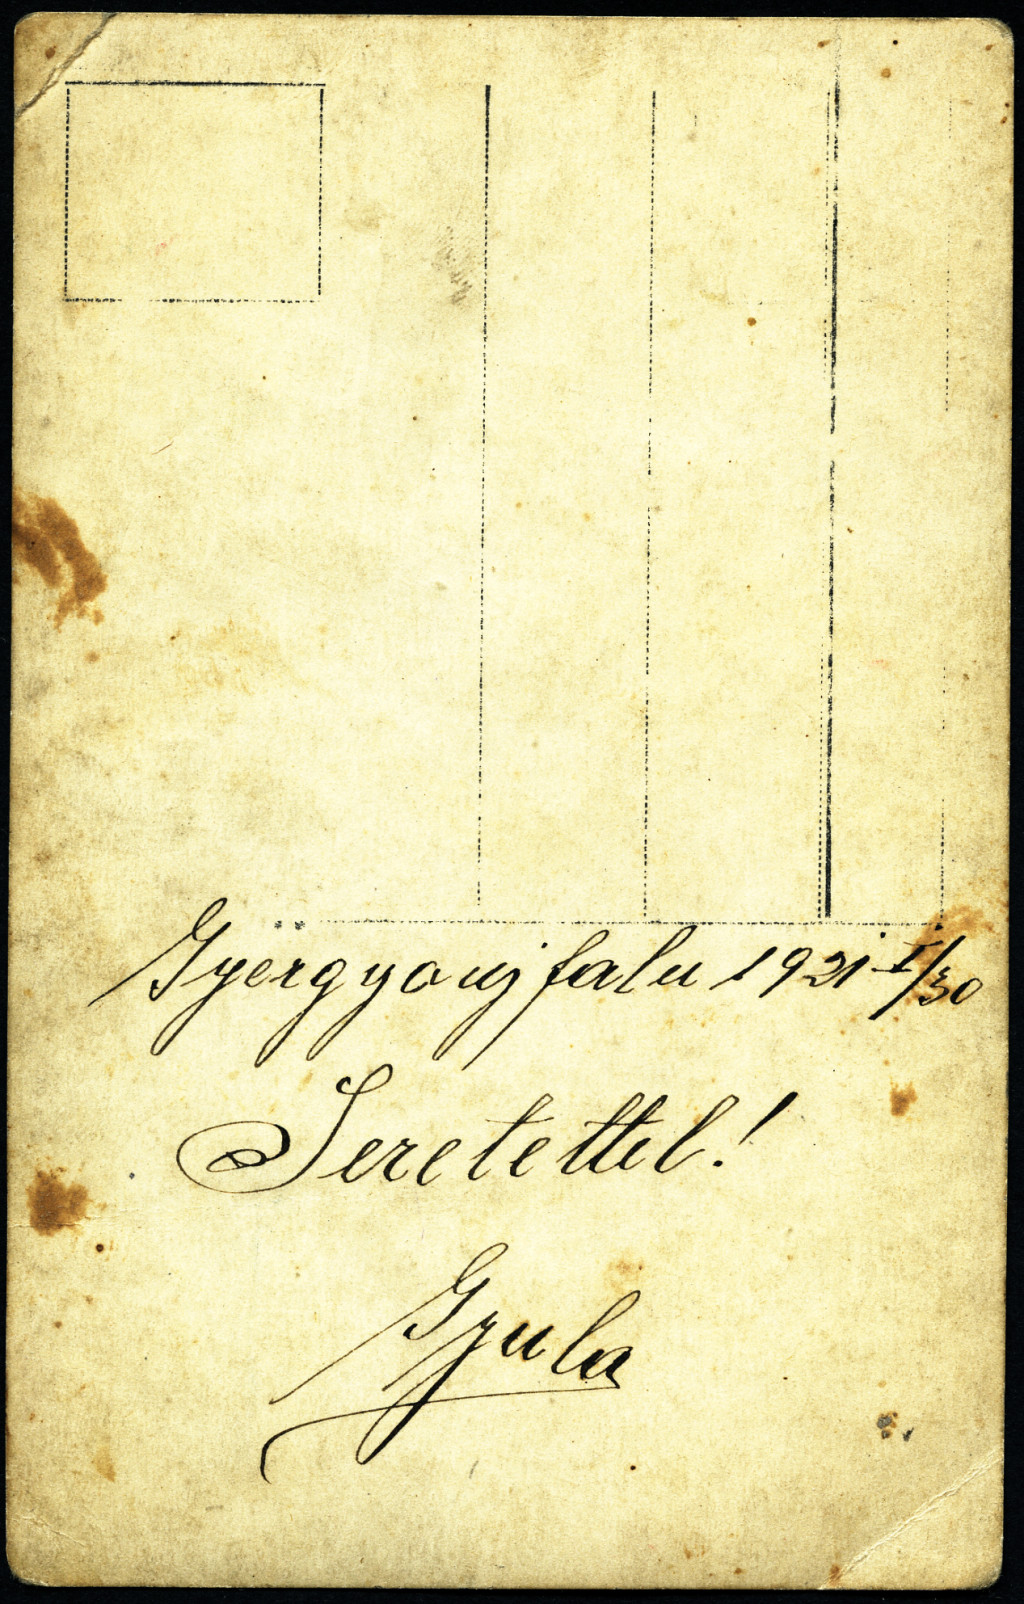 Gyergyoujfalu 1921 I/30
Seretettel!
Gyula